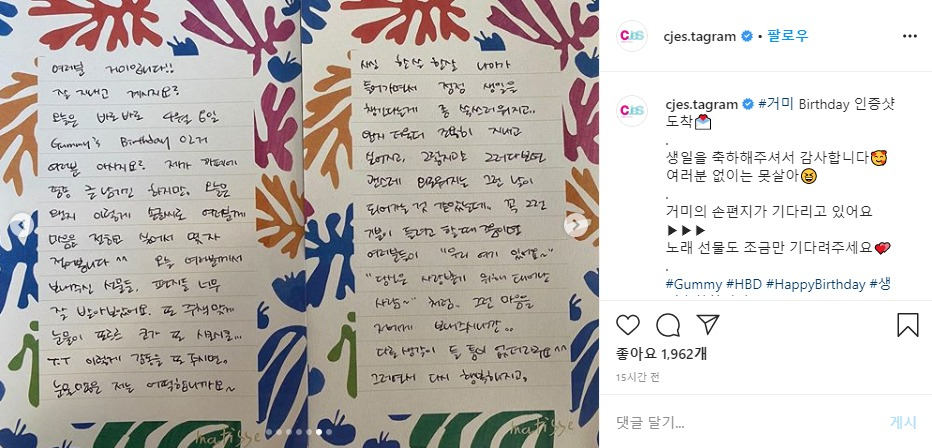 여러분 거미입니다!!
잘 지내고 계시지요?
오늘은 바로바로 4월 8일
Gummy's Birthday 인거
여러분 아시지요? 제가
글 남기긴 하지만, 오늘은
왠지 이렇게 손편지로
마음을 전하고 싶어서 몇 자
적어봅니다 ^^ 오늘 여러분께서
보내주신 선물들, 편지들 너무
잘 받아보았어요. 또 주책맞게
눈물이 또르르 코가 또
ㅜ.ㅜ 이렇게 감동을 또 주시면..
저는 어떡합니까요~
사실 한 살 한 살 나이가
들어가면서 점점 생일을
챙기는게 좀 쑥스러워지고..
왠지 더욱더 조용히 지내고
싶어지고, 그렇지만 그러다보면
괜스레 외로워지는 그런 날이
되어가는 것 같았는데.. 꼭 그런
기분이 들려고 할 때 쯤이면
여러분들이 "우리 여기 있어요~"
"당신은 사랑받기 위해 태어난
사람~" 처럼. 그런 마음을
저에게 보내주시니깐..
다른 생각이 들 틈이 없더라구요 ^^
그러면서 다시 행복해지고,
matisse
matisse
CJes
cjes.tagram • 팔로우
CJes
cjes.tagram #거미 Birthday 인증샷
도착
.
생일을 축하해주셔서 감사합니다
여러분 없이는 못살아
.
거미의 손편지가 기다리고 있어요
▶▶▶
노래 선물도 조금만 기다려주세요
.
#Gummy #HBD #HappyBirthday #생
좋아요 1,962개
15시간 전
댓글 달기...
게시